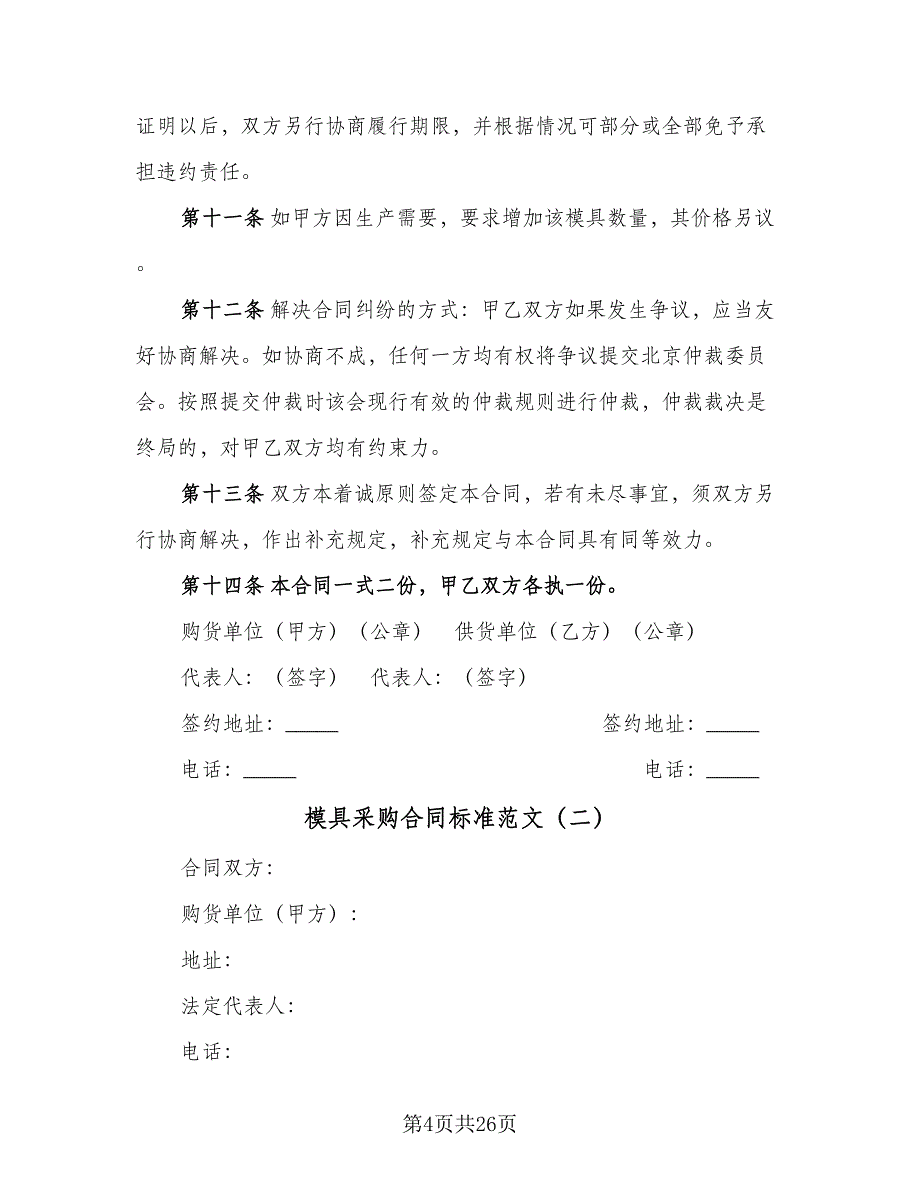 证明以后，双方另行协商履行期限，并根据情况可部分或全部免予承
担违约责任。
第十一条 如甲方因生产需要，要求增加该模具数量，其价格另议
。
第十二条 解决合同纠纷的方式：甲乙双方如果发生争议，应当友
好协商解决。如协商不成，任何一方均有权将争议提交北京仲裁委员
会。按照提交仲裁时该会现行有效的仲裁规则进行仲裁，仲裁裁决是
终局的，对甲乙双方均有约束力。
第十三条 双方本着诚原则签定本合同，若有未尽事宜，须双方另
行协商解决，作出补充规定，补充规定与本合同具有同等效力。
第十四条 本合同一式二份，甲乙双方各执一份。
购货单位（甲方）（公章） 供货单位（乙方）（公章）
代表人：（签字） 代表人：（签字）
签约地址：_____ 签约地址：_____
电话：_____ 电话：_____
模具采购合同标准范文（二）
合同双方：
购货单位（甲方）：
地址：
法定代表人：
电话：
第4页共26页